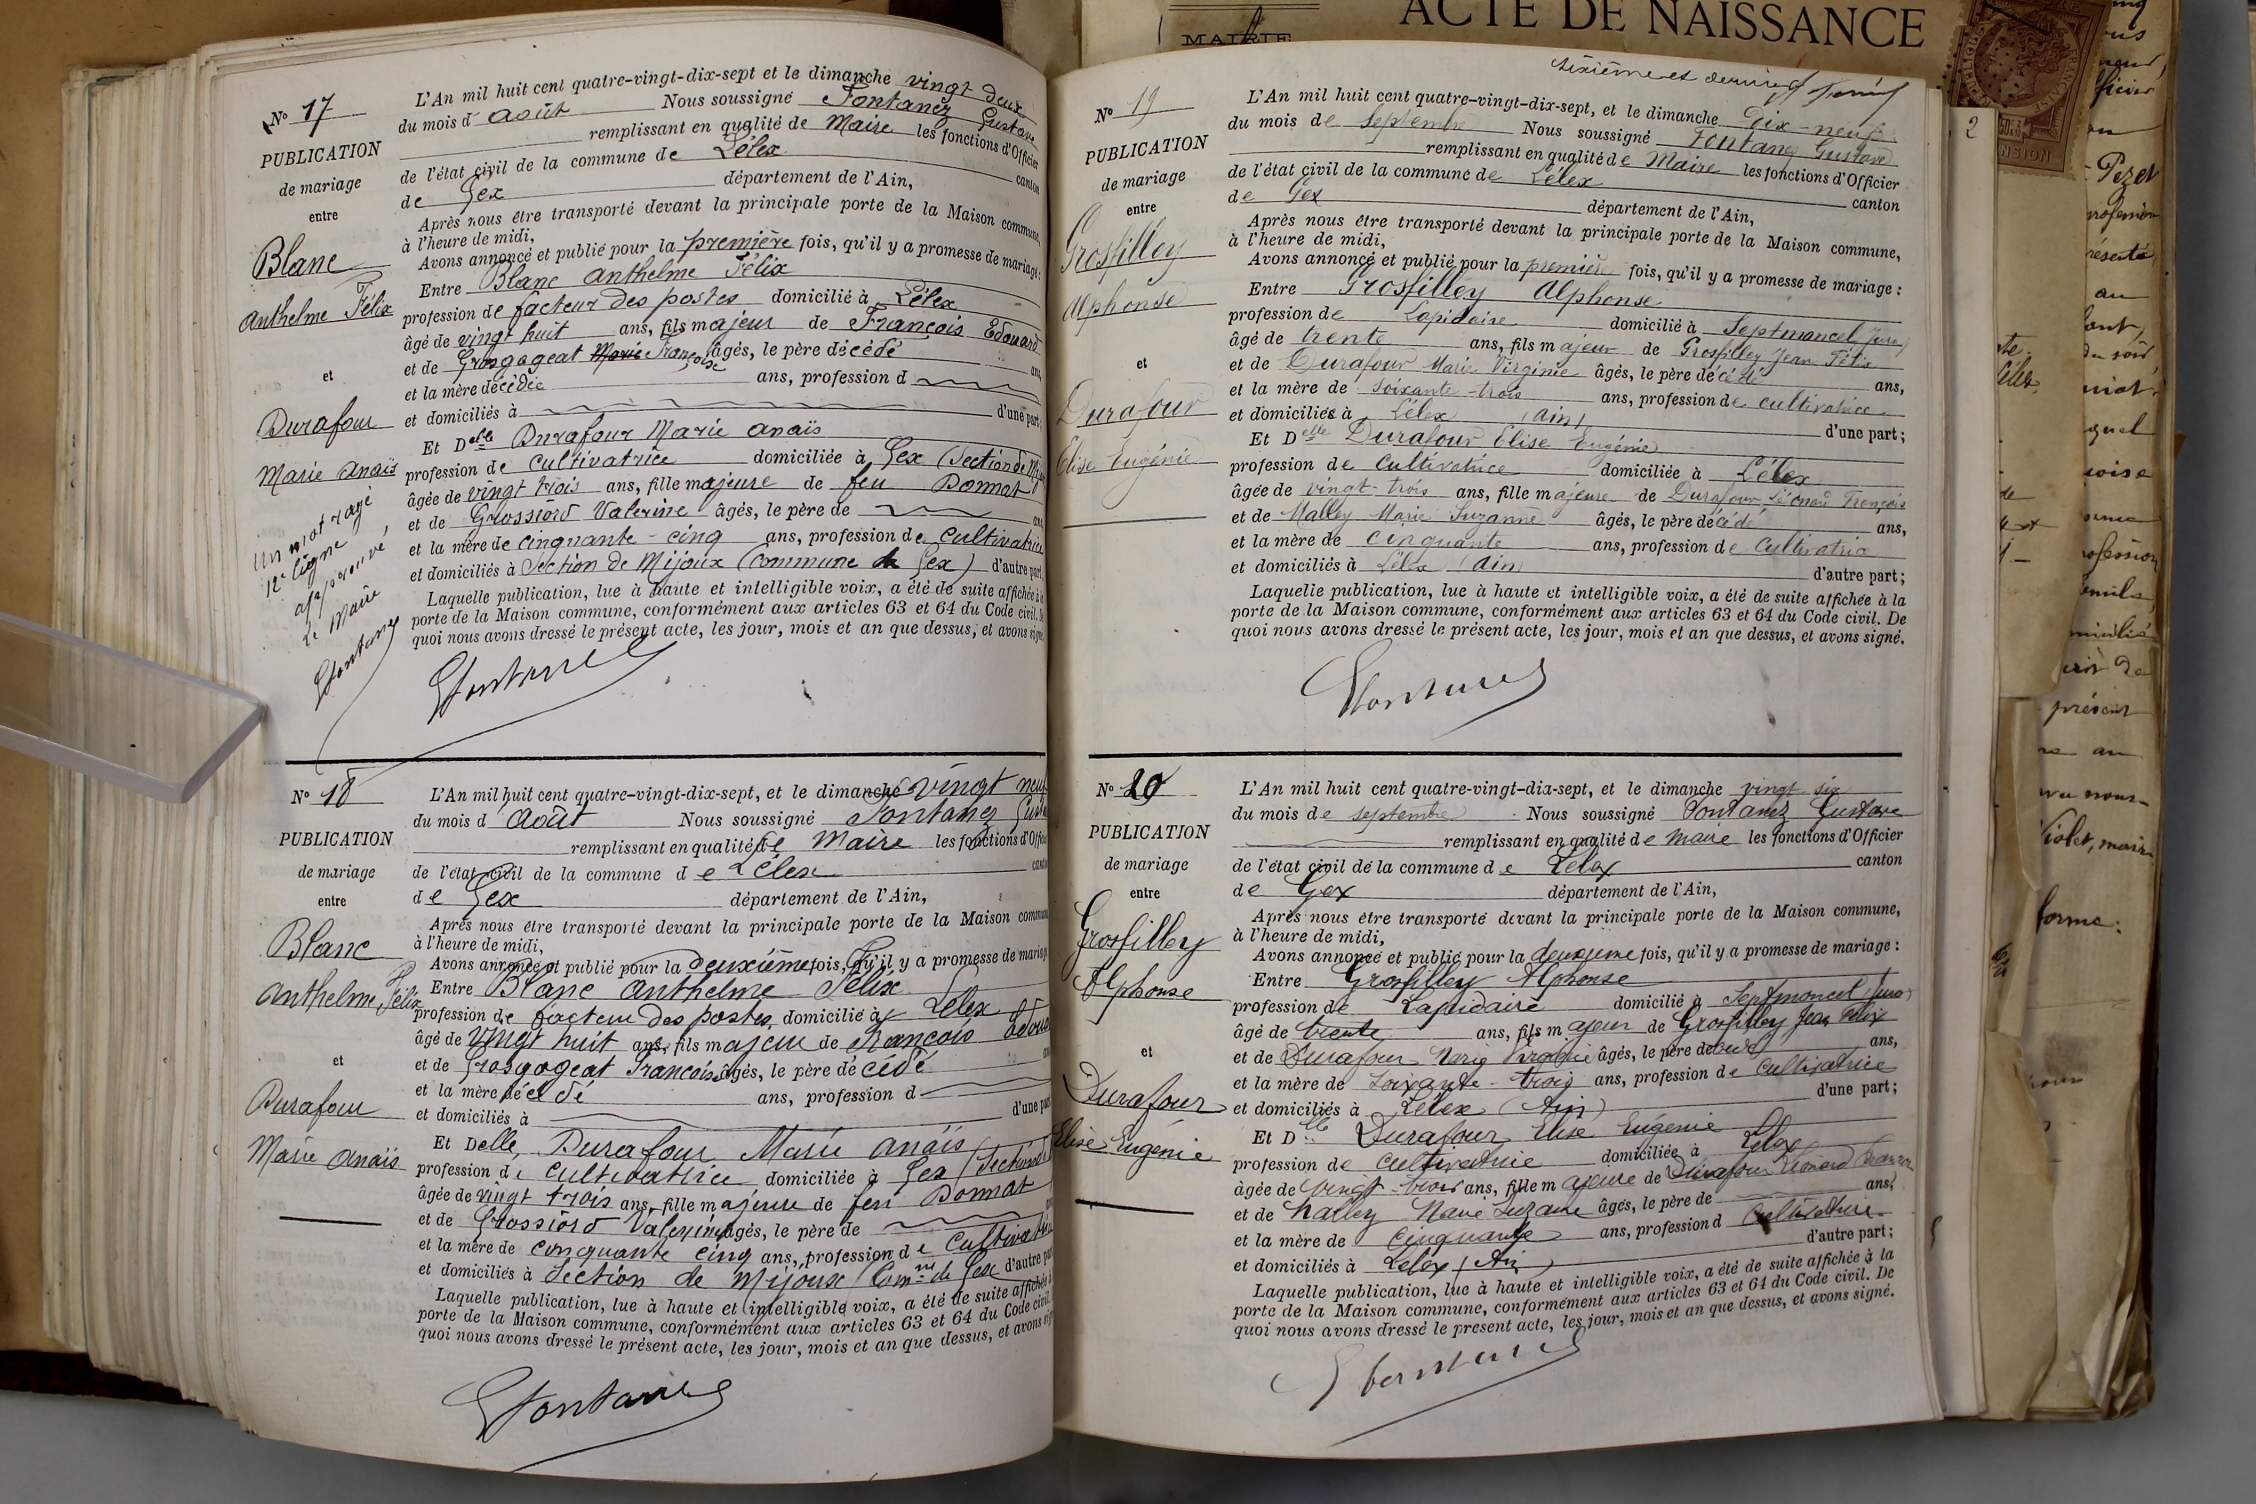 N° 17
PUBLICATION
de mariage
entre
Blanc
Anthelme Félix
et
Durafour
Marie Anaïs
Un mot rayé
12e ligne
approuvé,
Le Maire
GFontanez
L'An mil huit cent quatre-vingt-dix-sept et le dimanche vingt deux
du mois d'août Nous soussigné Fontanez Gustave
remplissant en qualité de Maire les fonctions d'Officier
de l'état civil de la commune de Lélex canton
de Gex département de l'Ain,
Après nous être transporté devant la principale porte de la Maison commune,
à l'heure de midi,
Avons annoncé et publié pour la première fois, qu'il y a promesse de mariage :
Entre Blanc Anthelme Félix
profession de facteur des postes domicilié à Lélex
âgé de vingt huit ans, fils majeur de François Edouard
et de Grosgogeat Marie Françoise âgés, le père décédé ans,
et la mère décédée ans, profession d
et domiciliés à d'une part;
Et Delle Durafour Marie Anaïs
profession de cultivatrice domiciliée à Gex (Section de Mijoux
âgée de vingt trois ans, fille majeure de feu Donnat
et de Grossiord Valérine âgés, le père de ans
et la mère de cinquante-cinq ans, profession de cultivatrice
et domiciliés à Section de Mijoux (commune de Gex) d'autre part
Laquelle publication, lue à haute et intelligible voix, a été de suite affichée à la
porte de la Maison commune, conformément aux articles 63 et 64 du Code civil. De
quoi nous avons dressé le présent acte, les jour, mois et an que dessus, et avons signé.
GFontanez
N° 18
PUBLICATION
de mariage
entre
Blanc
Anthelme Félix
et
Durafour
Marie Anaïs
L'An mil huit cent quatre-vingt-dix-sept, et le dimanche vingt neuf
du mois d'août Nous soussigné Fontanez Gustave
remplissant en qualité de Maire les fonctions d'Officier
de l'état civil de la commune de Lélex canton
de Gex département de l'Ain,
Après nous être transporté devant la principale porte de la Maison commune
à l'heure de midi,
Avons annoncé et publié pour la deuxième fois, qu'il y a promesse de mariage
Entre Blanc Anthelme Félix
profession de facteur des postes, domicilié à Lélex
âgé de vingt huit ans, fils majeur de François Edouard
et de Grosgogeat Françoise âgés, le père décédé
et la mère décédé ans, profession d
et domiciliés à d'une part
Et Delle Durafour Marie Anaïs
profession de cultivatrice domiciliée à Gex (Section de
âgée de vingt trois ans, fille majeure de feu Donnat
et de Grossiord Valérine âgés, le père de
et la mère de cinquante cinq ans, profession de cultivatrice
et domiciliés à Section de Mijoux (Comne de Gex d'autre part
Laquelle publication, lue à haute et intelligible voix, a été de suite affichée à
porte de la Maison commune, conformément aux articles 63 et 64 du Code civil.
quoi nous avons dressé le présent acte, les jour, mois et an que dessus, et avons signé
GFontanez
MAIRIE
ACTE DE NAISSANCE
sixième et dernier
N° 19
PUBLICATION
de mariage
entre
Grosfilley
Alphonse
et
Durafour
Elise Eugénie
L'An mil huit cent quatre-vingt-dix-sept, et le dimanche dix-neuf
du mois de septembre Nous soussigné Fontanez Gustave
remplissant en qualité de Maire les fonctions d'Officier
de l'état civil de la commune de Lélex canton
de Gex département de l'Ain,
Après nous être transporté devant la principale porte de la Maison commune,
à l'heure de midi,
Avons annoncé et publié pour la première fois, qu'il y a promesse de mariage :
Entre Grosfilley Alphonse
profession de Lapidaire domicilié à Septmoncel Jura
âgé de trente ans, fils majeur de Grosfilley Jean Félix
et de Durafour Marie Virginie âgés, le père décédé ans,
et la mère de soixante-trois ans, profession de cultivatrice
et domiciliés à Lélex (Ain) d'une part;
Et Delle Durafour Elise Eugénie
profession de cultivatrice domiciliée à Lélex
âgée de vingt-trois ans, fille majeure de Durafour Léonard François
et de Malley Marie Suzanne âgés, le père décédé ans,
et la mère de cinquante ans, profession de cultivatrice
et domiciliés à Lélex (Ain) d'autre part;
Laquelle publication, lue à haute et intelligible voix, a été de suite affichée à la
porte de la Maison commune, conformément aux articles 63 et 64 du Code civil. De
quoi nous avons dressé le présent acte, les jour, mois et an que dessus, et avons signé.
GFontanez
N° 20
PUBLICATION
de mariage
entre
Grosfilley
Alphonse
et
Durafour
Elise Eugénie
L'An mil huit cent quatre-vingt-dix-sept, et le dimanche vingt six
du mois de septembre Nous soussigné Fontanez Gustave
remplissant en qualité de maire les fonctions d'Officier
de l'état civil de la commune de Lélex canton
de Gex département de l'Ain,
Après nous être transporté devant la principale porte de la Maison commune,
à l'heure de midi,
Avons annoncé et publié pour la deuxième fois, qu'il y a promesse de mariage :
Entre Grosfilley Alphonse
profession de Lapidaire domicilié à Septmoncel (Jura)
âgé de trente ans, fils majeur de Grosfilley Jean Félix
et de Durafour Marie Virginie âgés, le père décédé ans,
et la mère de soixante-trois ans, profession de cultivatrice
et domiciliés à Lélex (Ain) d'une part;
Et Dlle Durafour Elise Eugénie
profession de cultivatrice domiciliée à Lélex
âgée de vingt-trois ans, fille majeure de Durafour Léonard François
et de Malley Marie Suzanne âgés, le père de ans,
et la mère de cinquante ans, profession d cultivatrice
et domiciliés à Lélex (Ain d'autre part;
Laquelle publication, lue à haute et intelligible voix, a été de suite affichée à la
porte de la Maison commune, conformément aux articles 63 et 64 du Code civil. De
quoi nous avons dressé le présent acte, les jour, mois et an que dessus, et avons signé.
GFontanez
2
Pezet
présent
Violet, maire
forme: